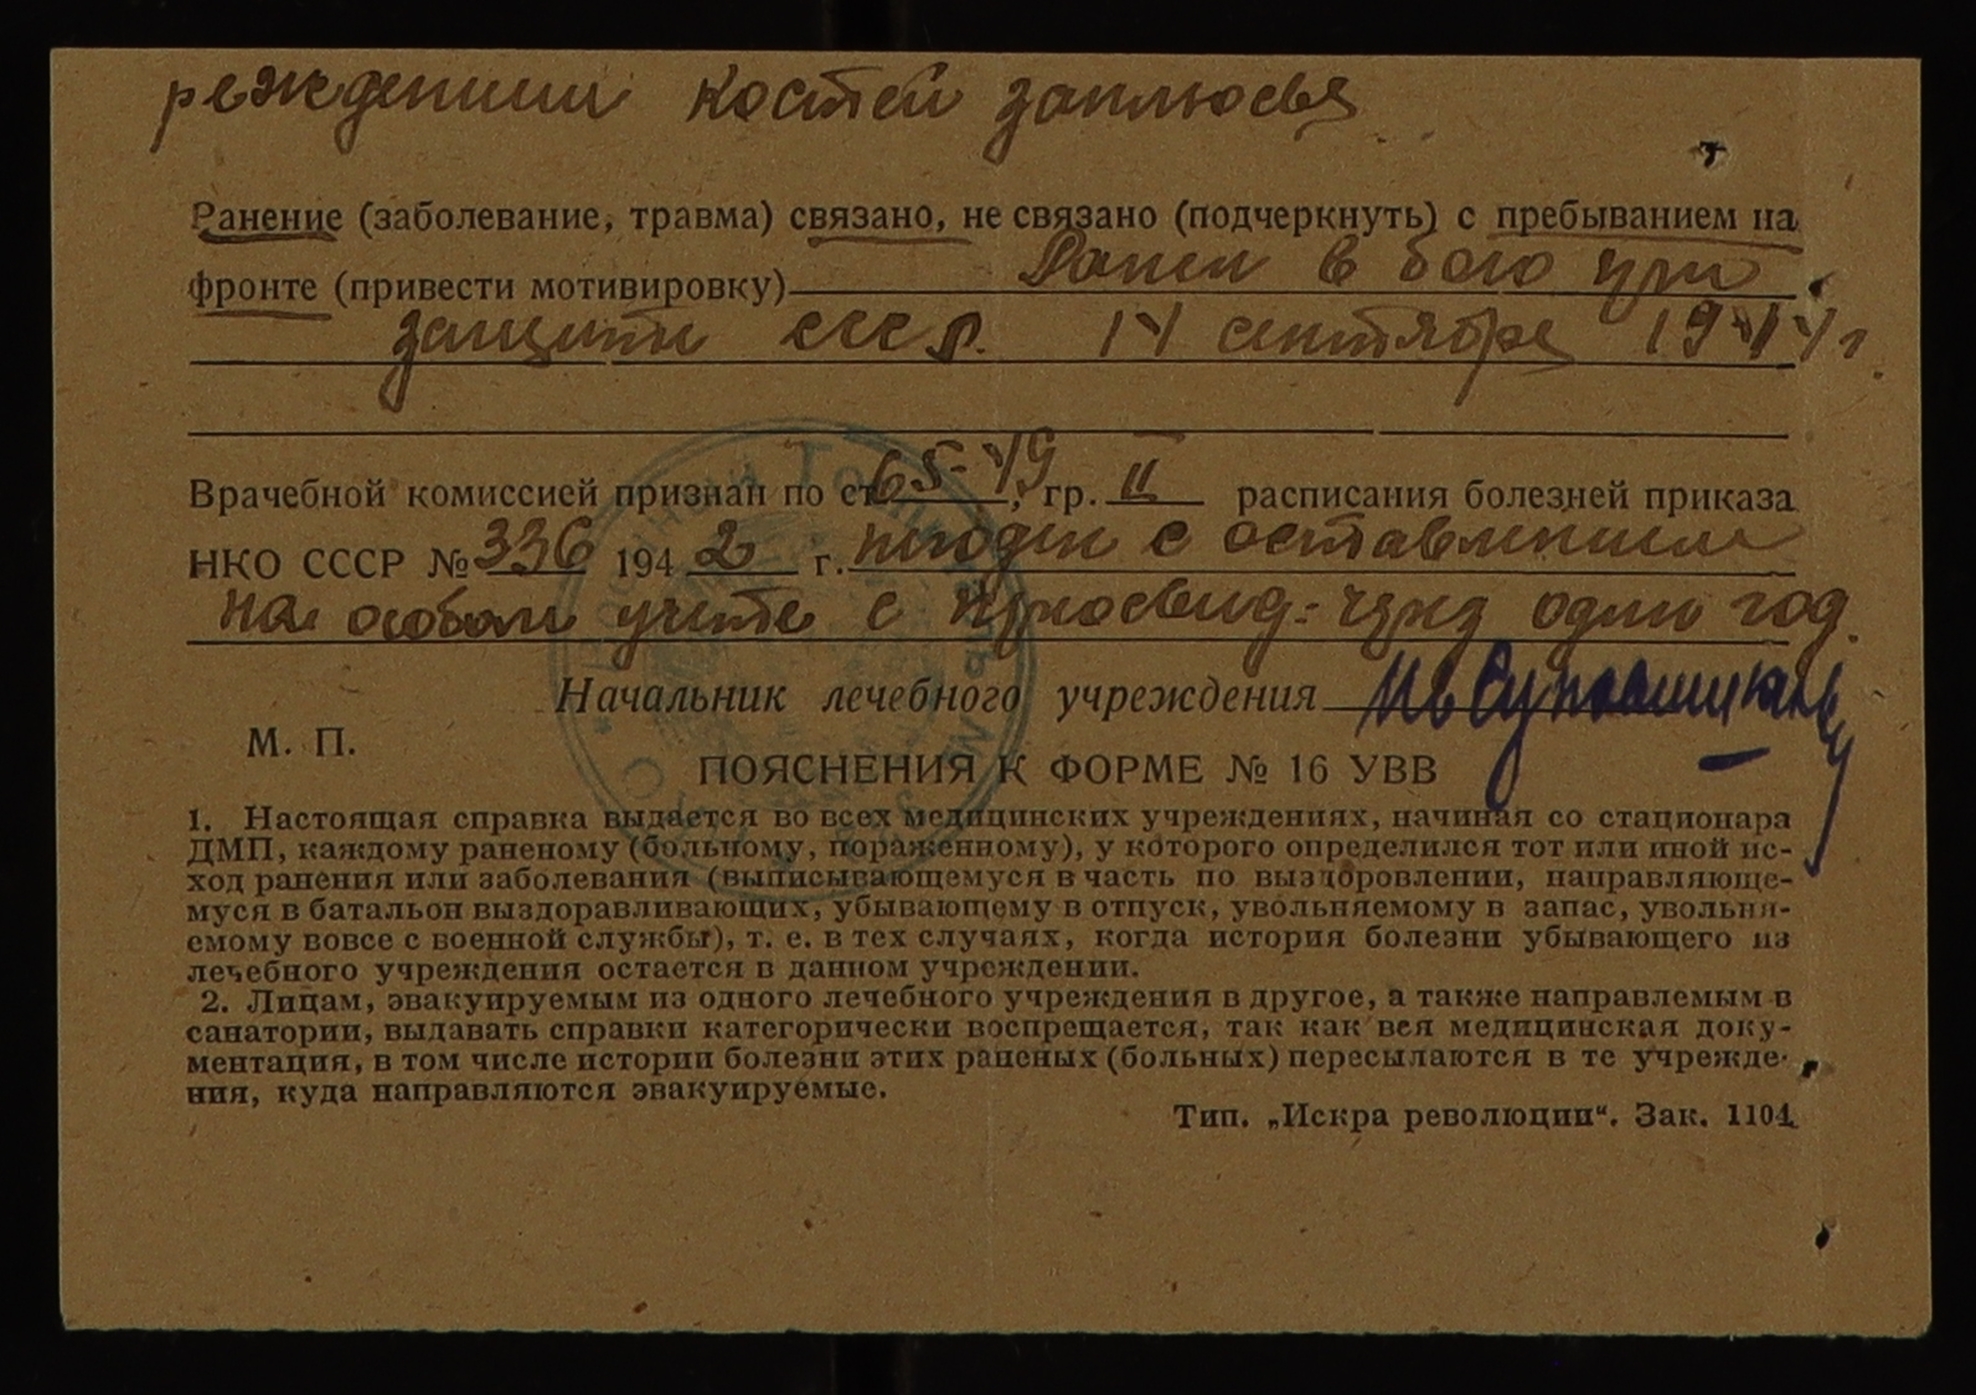 реждением костей заплюсья
Ранение (заболевание, травма) связано, не связано (подчеркнуть) с пребыванием на
фронте (привести мотивировку) Ранен в бою при
защите СССР. 14 сентября 1944 г.
Врачебной комиссией признан по ст. 65-49, гр. II расписания болезней приказа
НКО СССР № 336 1942 г. негоден с оставлением
на особом учете с переосвид- чрез один год.
Начальник лечебного учреждения
М. П.
ПОЯСНЕНИЯ К ФОРМЕ № 16 УВВ
1. Настоящая справка выдается во всех медицинских учреждениях, начиная со стационара
ДМП, каждому раненому (больному, пораженному), у которого определился тот или иной ис-
ход ранения или заболевания (выписывающемуся в часть по выздоровлении, направляюще-
муся в батальон выздоравливающих, убывающему в отпуск, увольняемому в запас, увольня-
емому вовсе с военной службы), т. е. в тех случаях, когда история болезни убывающего из
лечебного учреждения остается в данном учреждении.
2. Лицам, эвакуируемым из одного лечебного учреждения в другое, а также направлемым в
санатории, выдавать справки категорически воспрещается, так как вся медицинская доку-
ментация, в том числе истории болезни этих раненых (больных) пересылаются в те учрежде-
ния, куда направляются эвакуируемые.
Тип. „Искра революции“. Зак. 1104